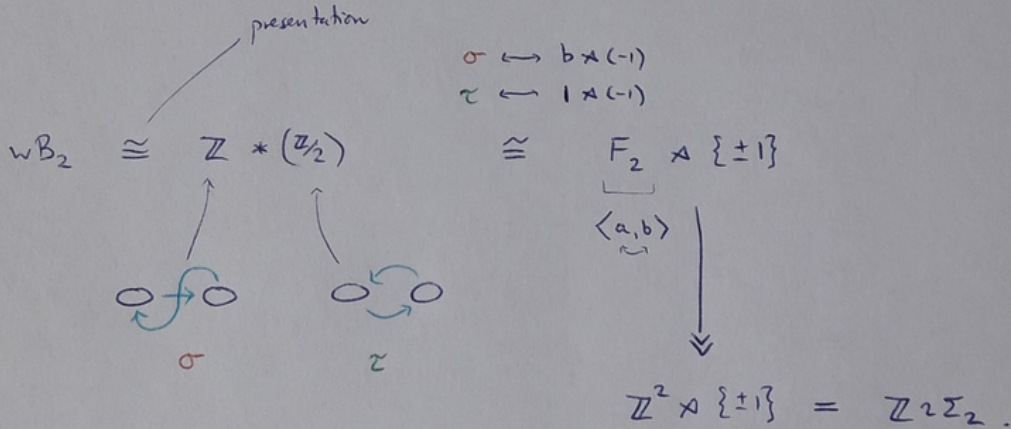 presentation
σ ⟷ b ⋊ (-1)
τ ⟵ 1 ⋊ (-1)
wB₂ ≅ ℤ * (ℤ/2) ≅ F₂ ⋊ {±1}
⟨a,b⟩
σ τ
ℤ² ⋊ {±1} = ℤ≀Σ₂.